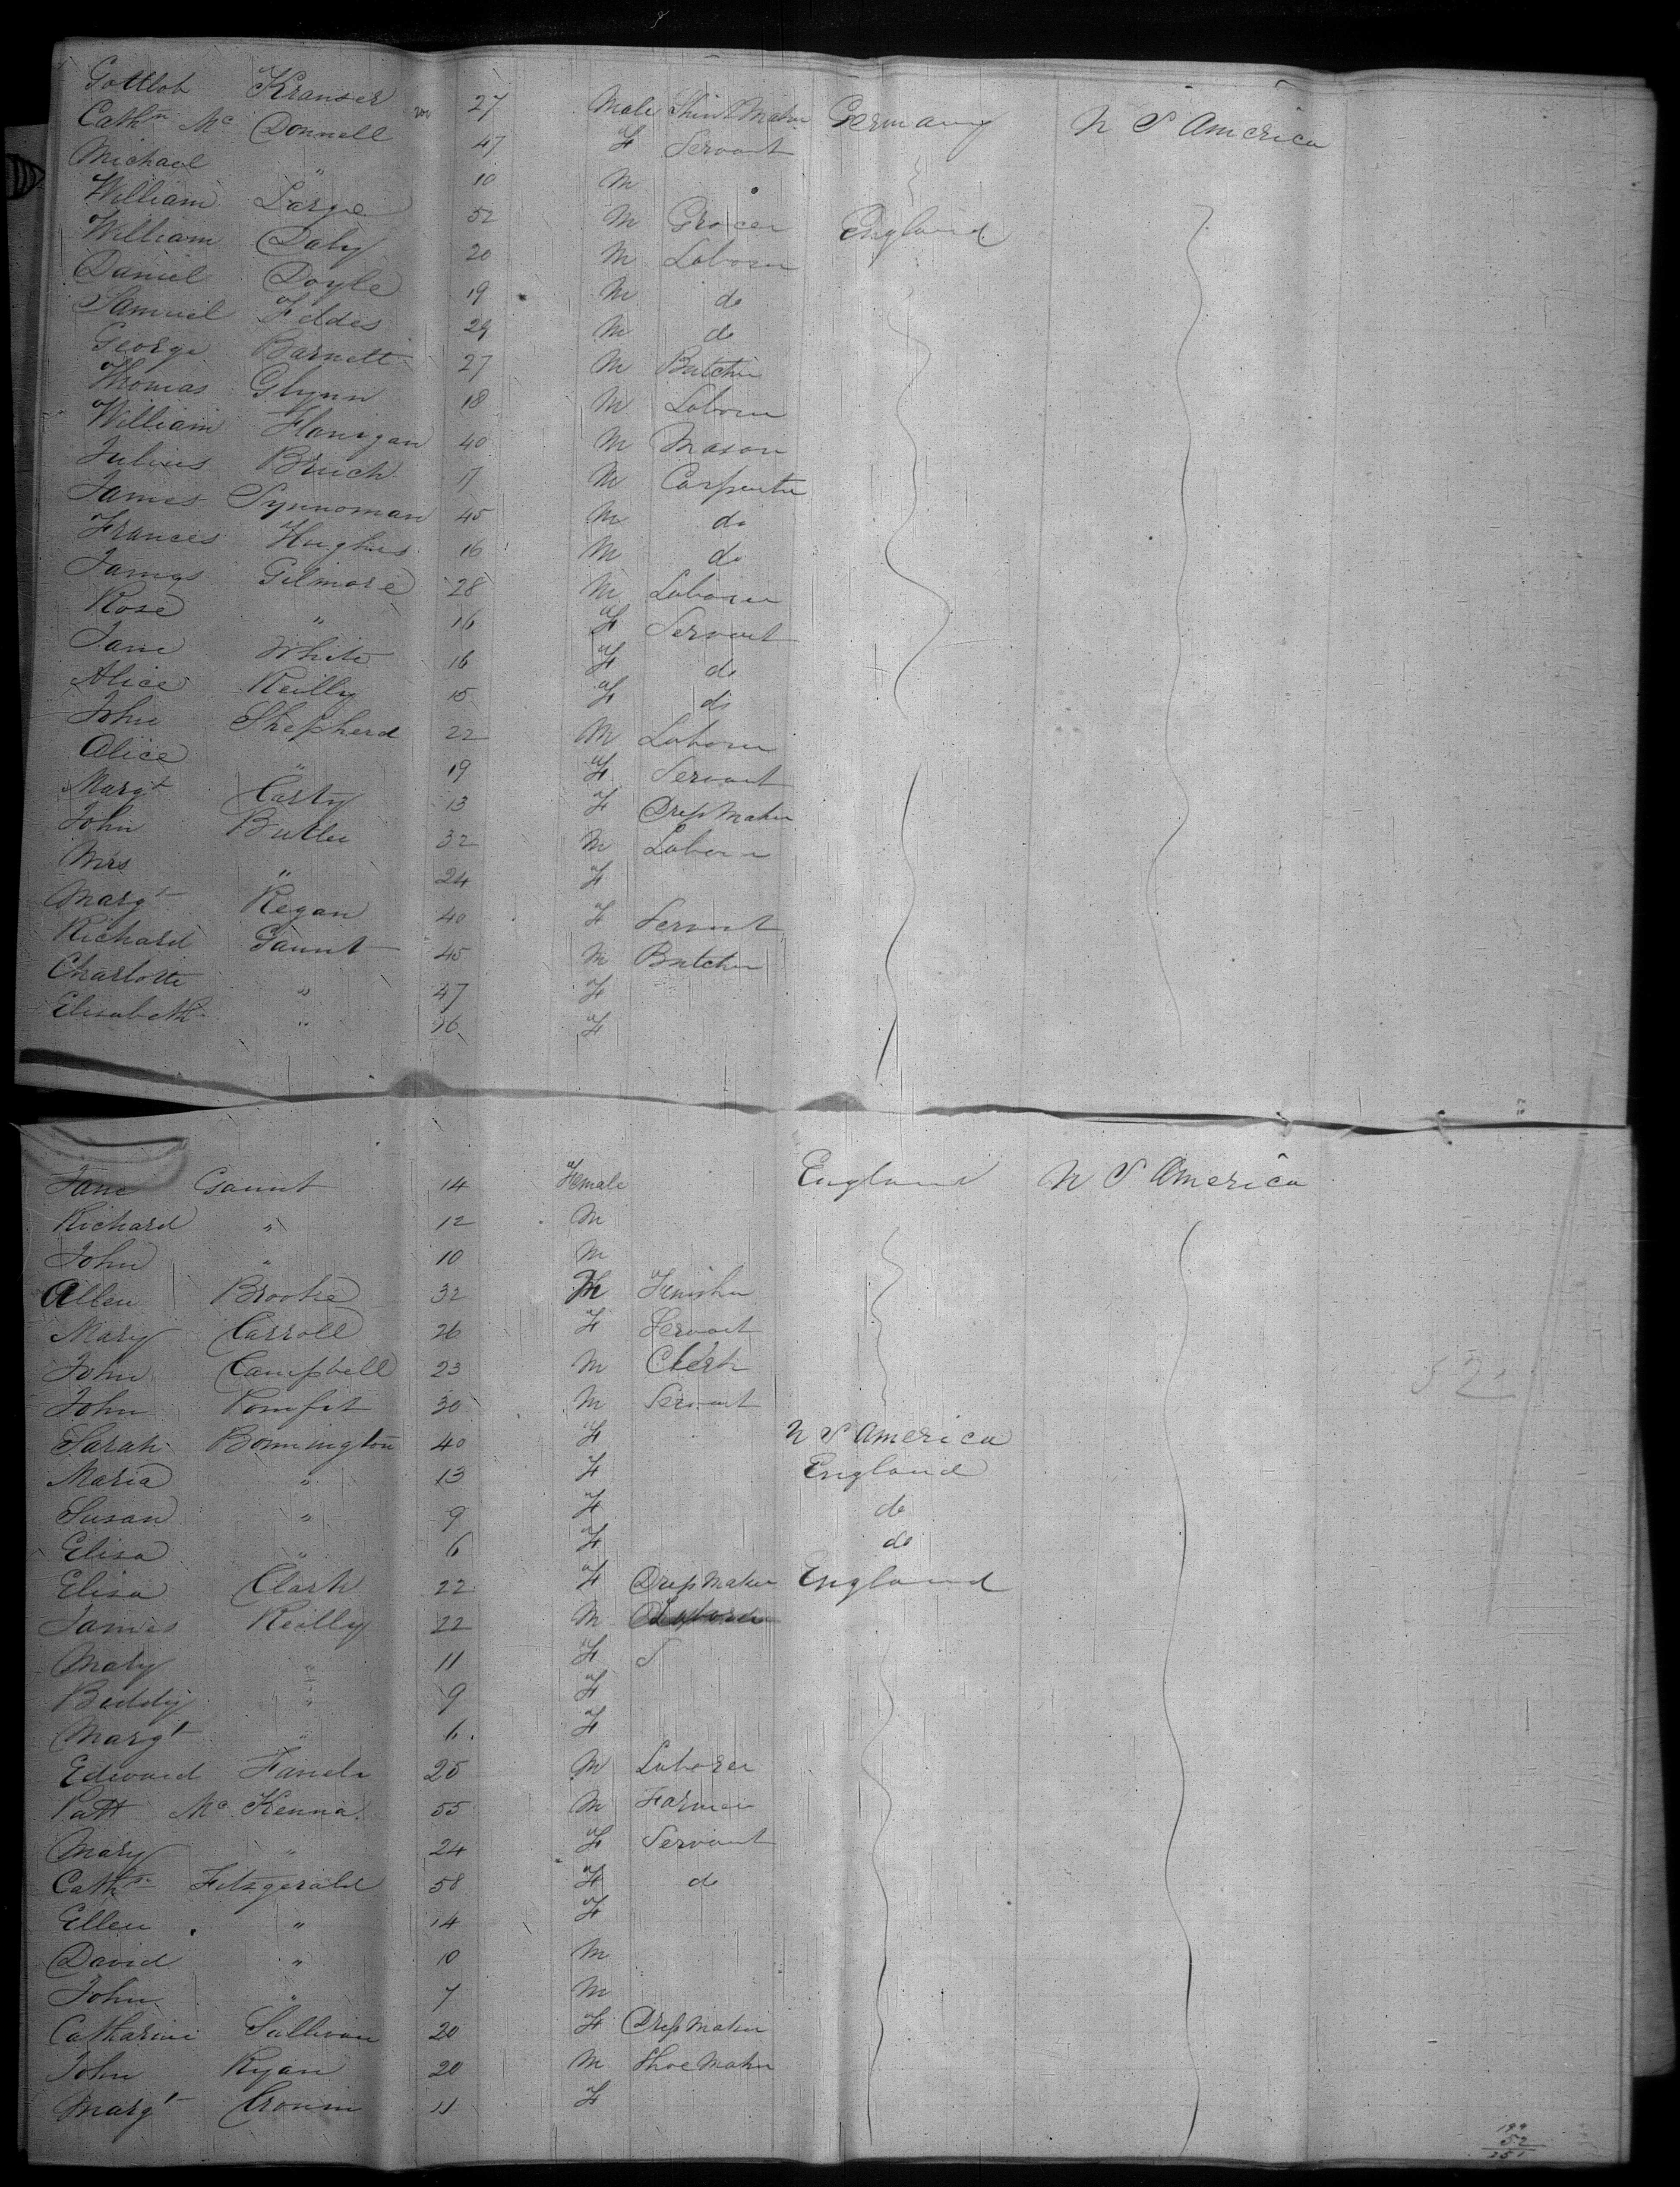 Gottlob Kranser 27 Male Shirt Maker Germany N S America
Cathn Mc Donnell 47 F Servant
Michael " 10 M
William Large 52 M Grocer England
William Daly 20 M Laborer
Daniel Doyle 19 M do
Samuel Feddis 29 M do
George Barnett 27 M Butcher
Thomas Glynn 18 M Laborer
William Flanigan 40 M Mason
Julius Bruch 17 M Carpenter
James Synnoman 45 M do
Frances Hughes 16 M do
James Gilmore 28 M Laborer
Rose " 16 F Servant
Jane White 16 F do
Alice Reilly 15 F do
John Shepherd 22 M Laborer
Alice " 19 F Servant
Margt Carty 13 F Dress Maker
John Butler 32 M Laborer
Mrs " 24 F
Margt Regan 40 F Servant
Richard Gaunt 45 M Butcher
Charlotte " 47 F
Elisabeth " 16 F
Jane Gaunt 14 Female England N S America
Richard " 12 M
John " 10 M
Allen Brooke 32 M Finisher
Mary Carroll 26 F Servant
John Campbell 23 M Clerk
John Pomfit 30 M Servant
Sarah Bonnington 40 F N S America
Maria " 13 F England
Susan " 9 F do
Elisa " 6 F do
Elisa Clark 22 F Dress Maker England
James Reilly 22 M Laborer
Mary " 11 F S
Biddy " 9 F
Margt " 6 F
Edward 25 M Laborer
Patt Mc Kenna 55 M Farmer
Mary " 24 F Servant
Cathn Fitzgerald 58 F do
Ellen " 14 F
David " 10 M
John " 7 M
Catharine Sullivan 20 F Dress Maker
John Ryan 20 M Shoe Maker
Margt Cronin 11 F
52
199
52
251